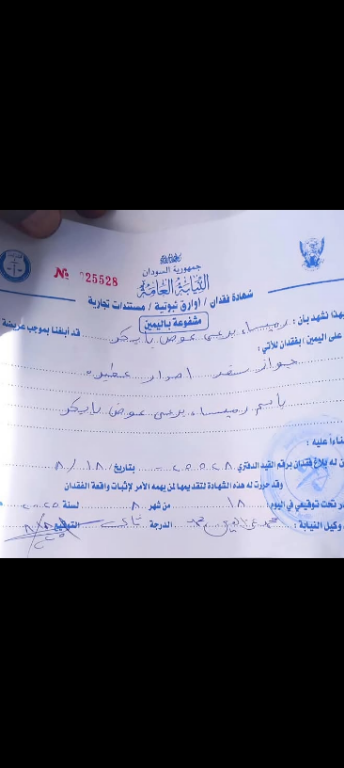 جمهورية السودان
النيابة العامة
№ 025528
شهادة فقدان / أوراق ثبوتية / مستندات تجارية
مشفوعة باليمين
بهذا نشهد بأن : رميساء يرعى عوض بابكر قد أبلغنا بموجب عريضة
على اليمين) بفقدان للآتي :
جواز سفر اصدار عطبره
باسم رميساء يرعى عوض بابكر
بناءاً عليه :
له بلاغ فقدان برقم القيد الدفتري ٠٢٥٥٢٨ بتاريخ / ١٨ / ٨
وقد حررت له هذه الشهادة لتقديمها لمن يهمه الأمر لإثبات واقعة الفقدان
تحت توقيعي في اليوم ١٨ من شهر ٨ لسنة ٢٠٢٥
وكيل النيابة : محمد الدرجة التوقيع